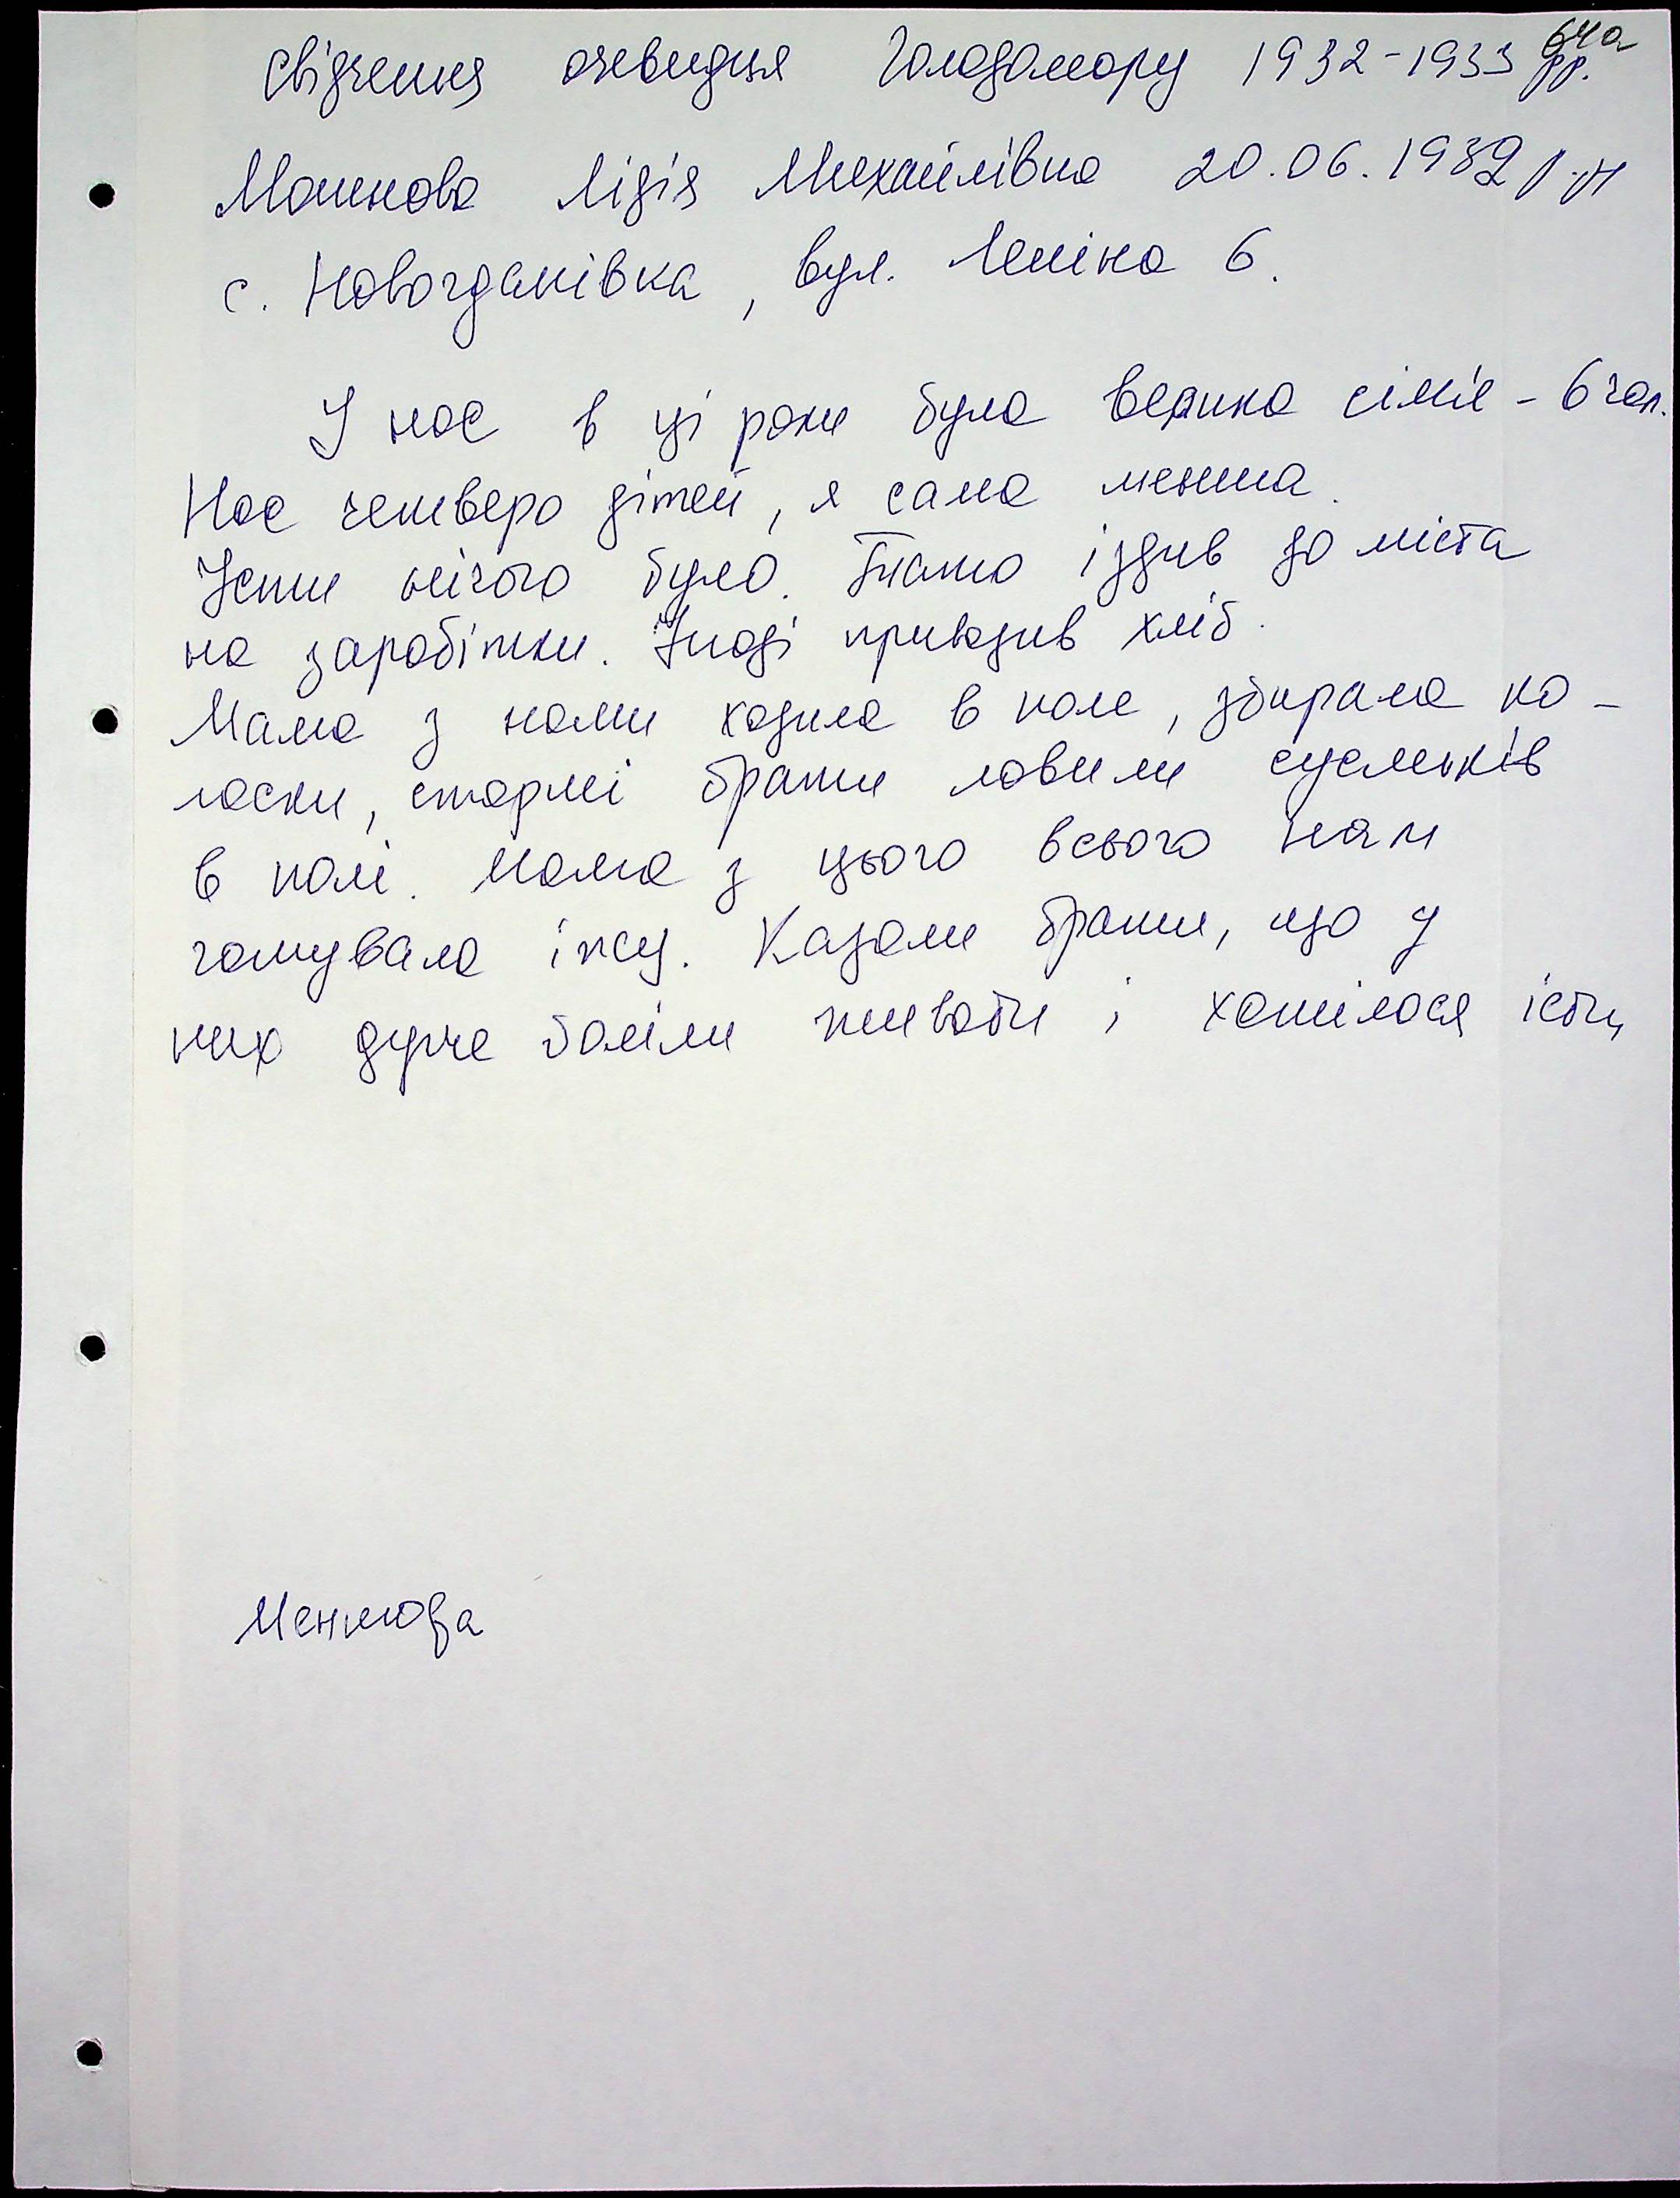 64а
Свідчення очевидця Голодомору 1932-1933 рр.
Лідія Михайлівна 20.06.1932 р.н
с. Новогданівка, вул. Леніна 6.
У нас в ці роки була велика сім'я - 6 чол.
Нас четверо дітей, я сама менша.
Їсти нічого було. Тато їздив до міста
на заробітки. Іноді привозив хліб.
Мама з нами ходила в поле, збирала ко-
лоски, старші брати ловили сусликів
в полі. Мама з цього всього нам
готувала їжу. Казали брати, що у
них дуже боліли животи і хотілося їсти